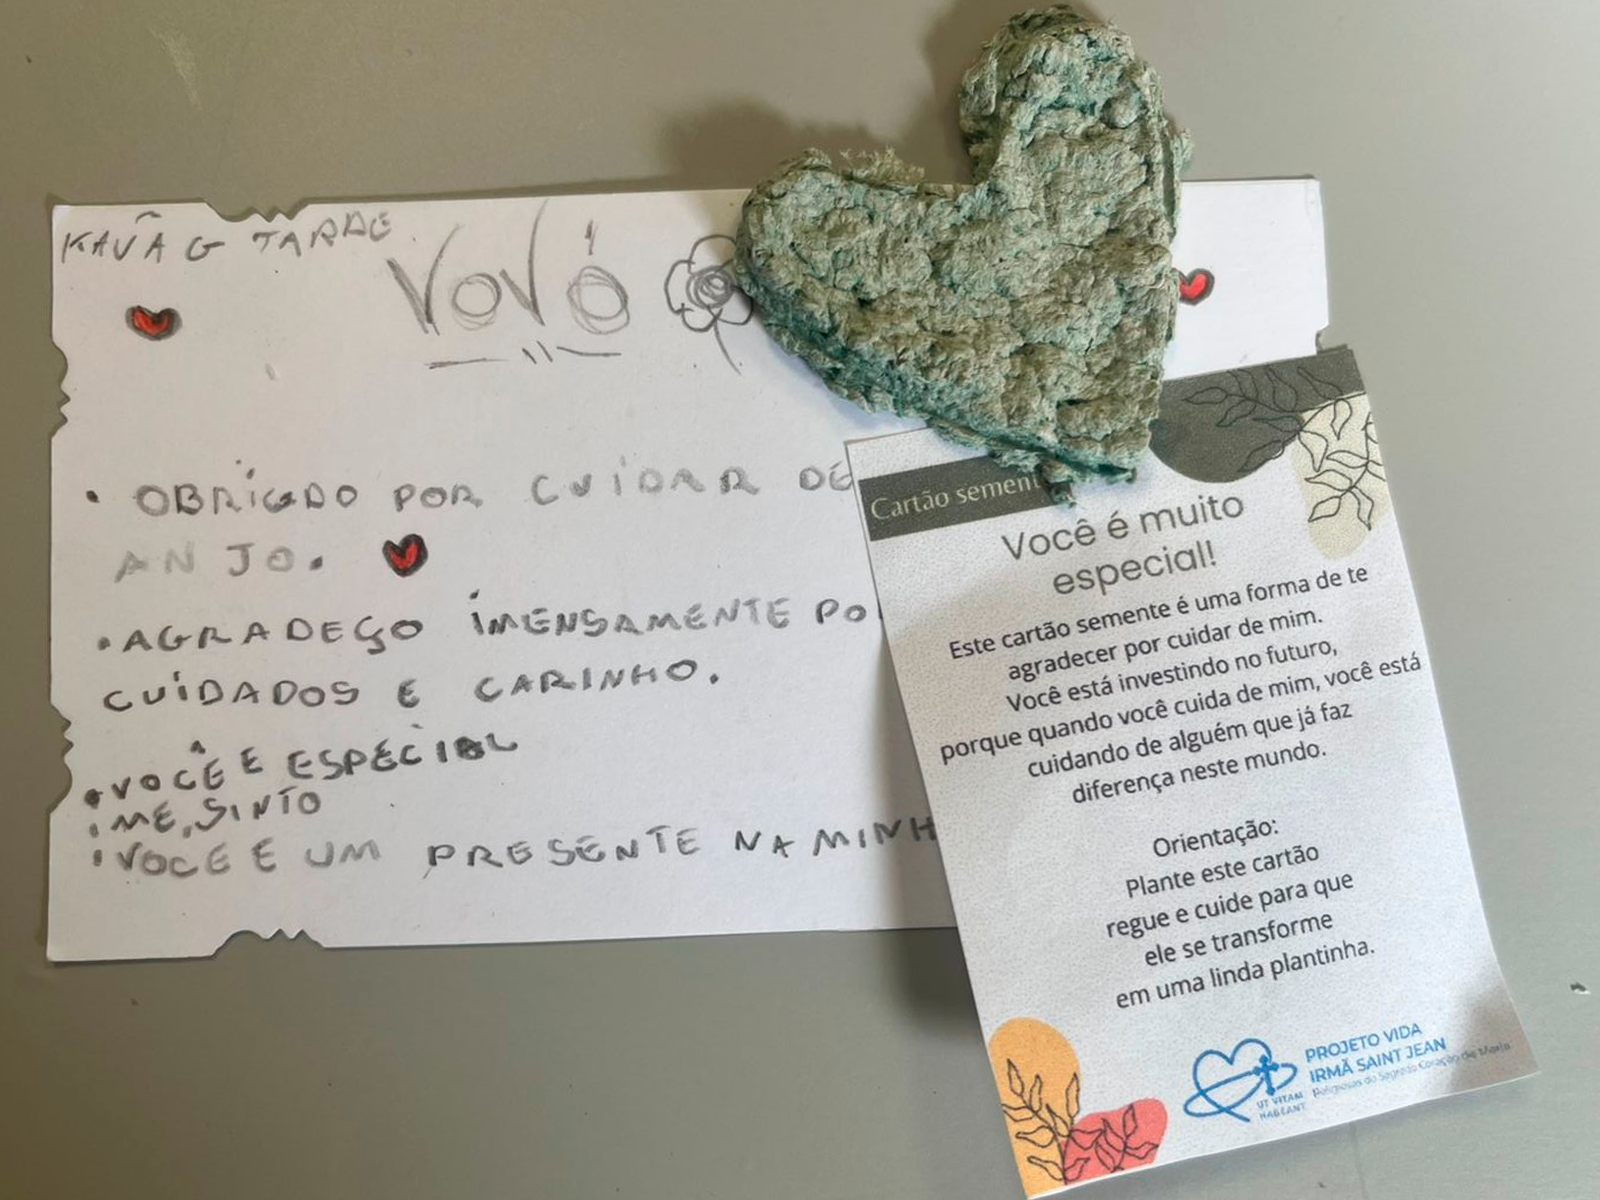 KAUÃ G TARDE
VOVÓ
• OBRIGADO POR CUIDAR DE
ANJO.
• AGRADEÇO IMENSAMENTE
CUIDADOS E CARINHO.
• VOCÊ E ESPECIAL
ME SINTO
• VOCE E UM PRESENTE NA
Cartão
Você é muito
especial!
Este cartão semente é uma forma de te
agradecer por cuidar de mim.
Você está investindo no futuro,
porque quando você cuida de mim, você está
cuidando de alguém que já faz
diferença neste mundo.
Orientação:
Plante este cartão
regue e cuide para que
ele se transforme
em uma linda plantinha.
PROJETO VIDA
IRMÃ SAINT JEAN
Religiosas do Sagrado Coração de Maria
UT VITAM
HABEANT